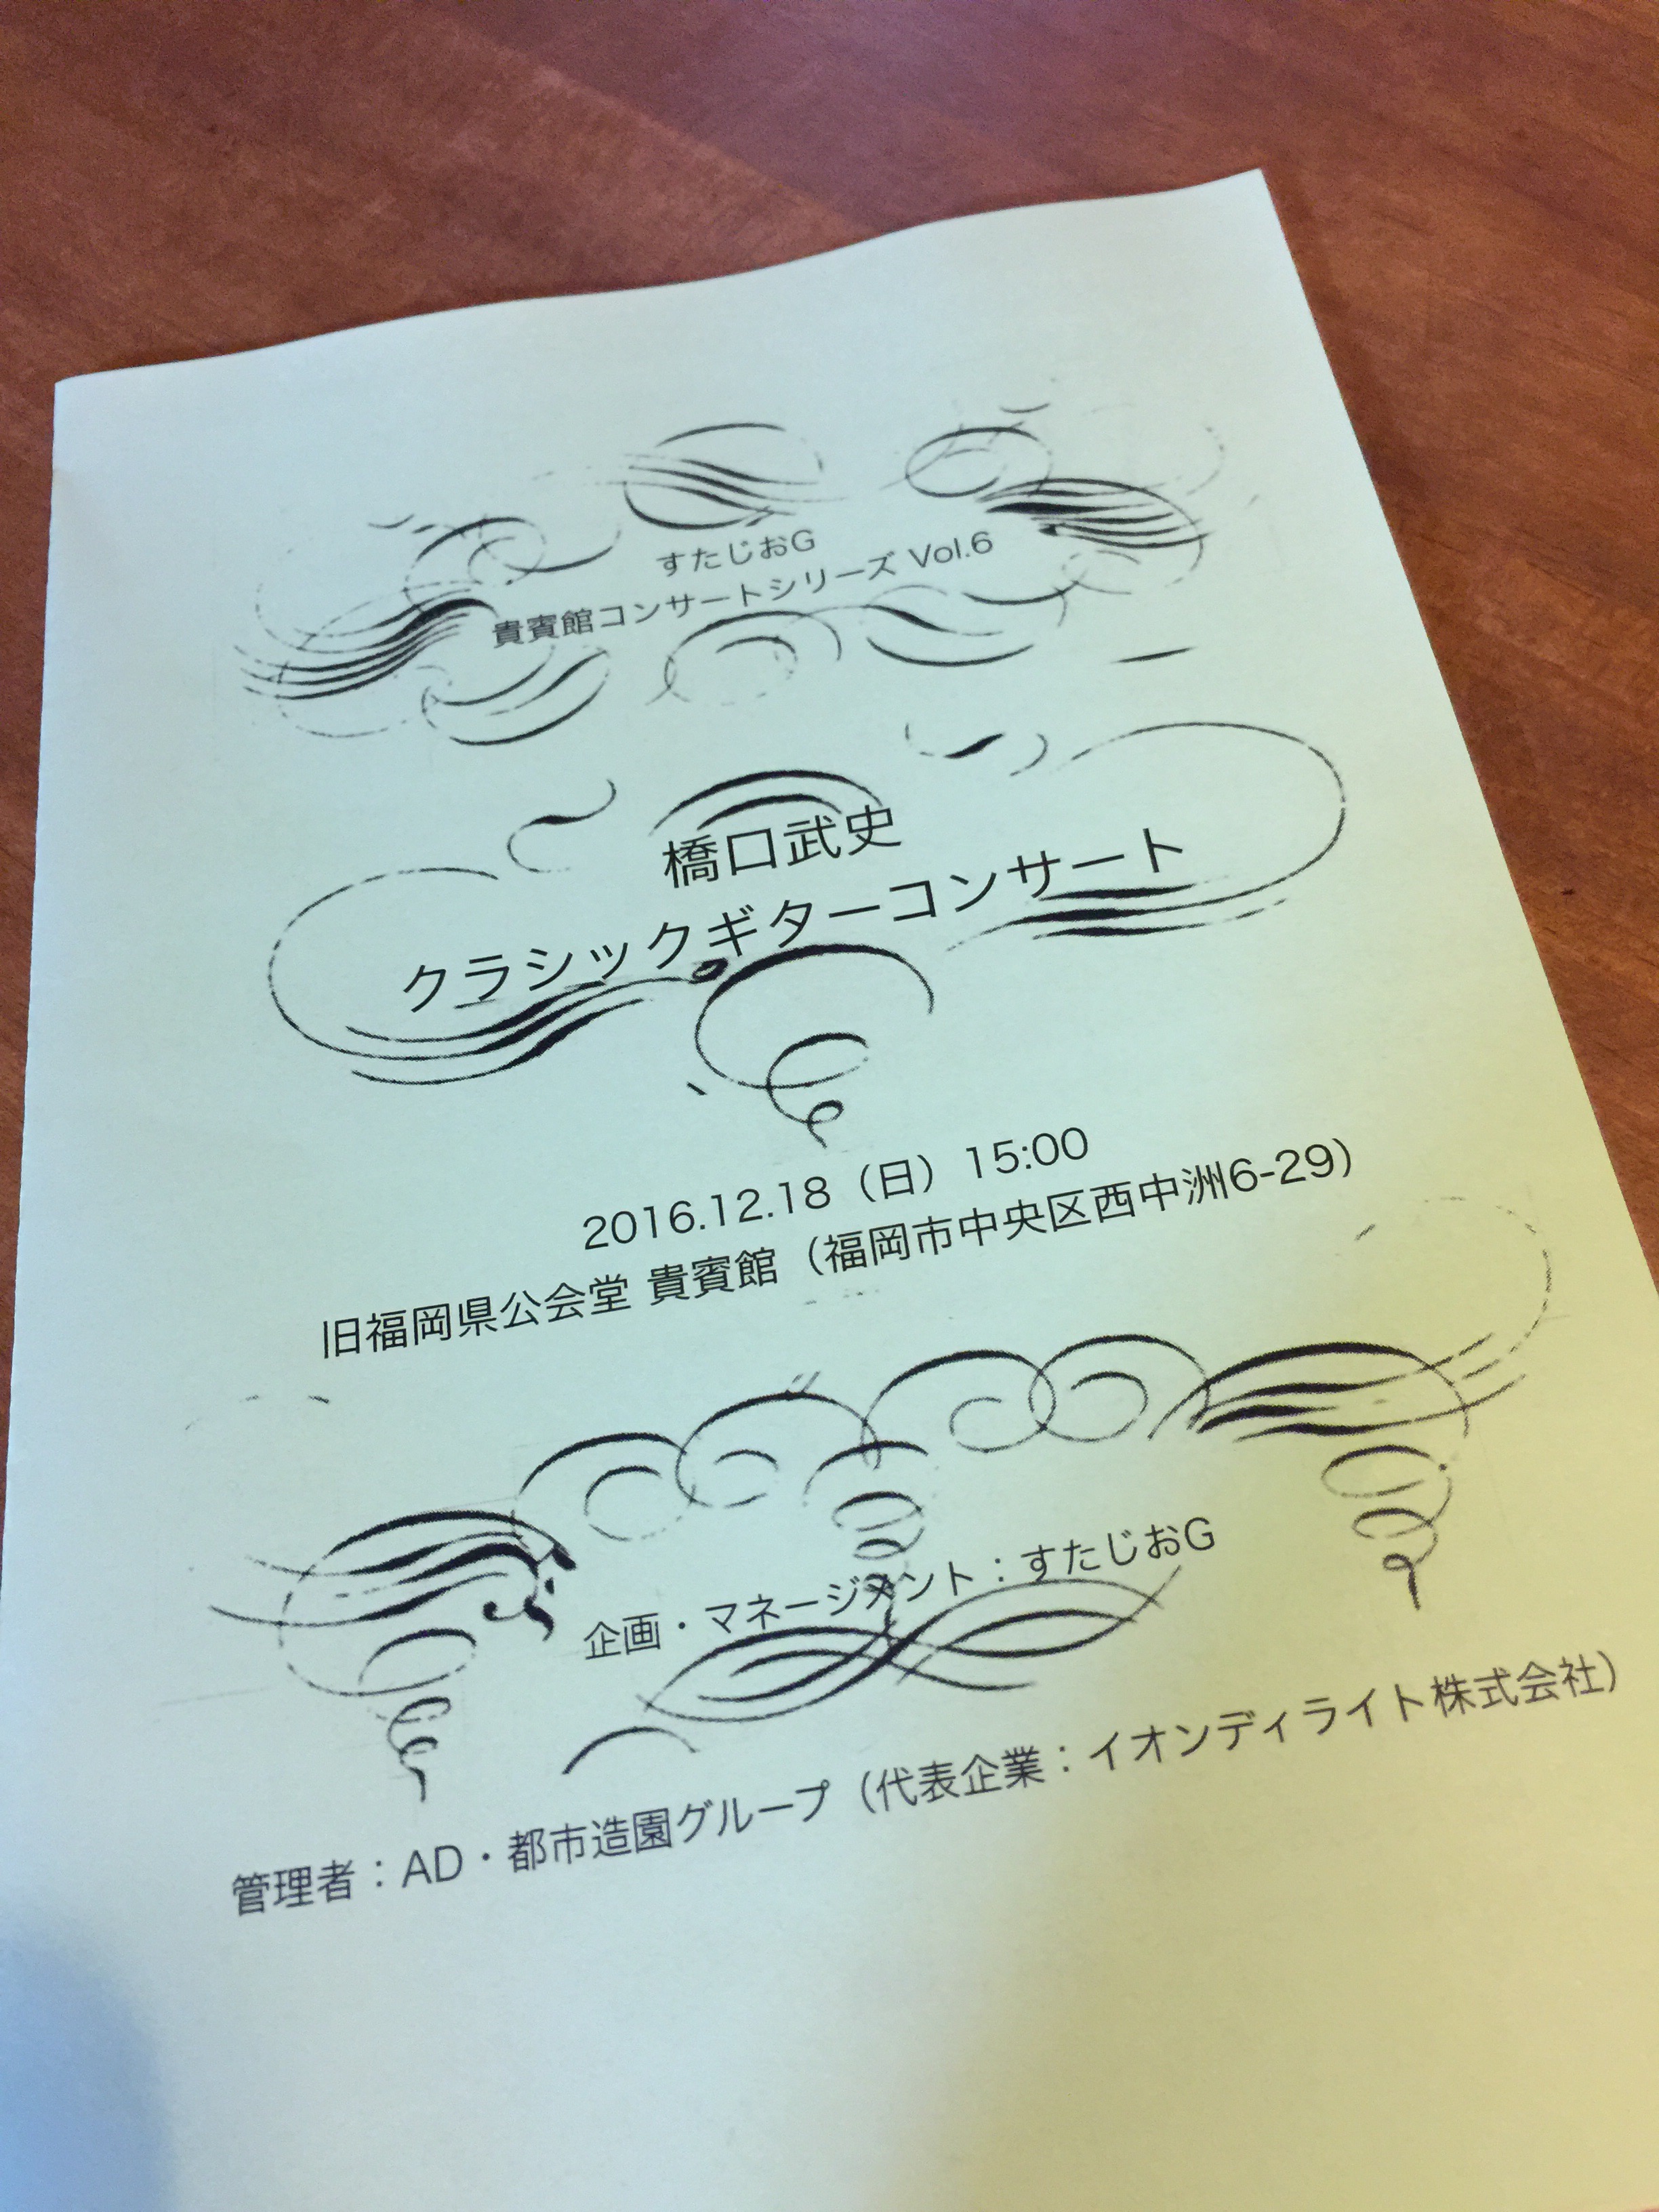 すたじおG
貴賓館コンサートシリーズ Vol.6
橋口武史
クラシックギターコンサート
2016.12.18（日）15:00
旧福岡県公会堂 貴賓館（福岡市中央区西中洲6-29）
企画・マネージメント：すたじおG
管理者：AD・都市造園グループ（代表企業：イオンディライト株式会社）